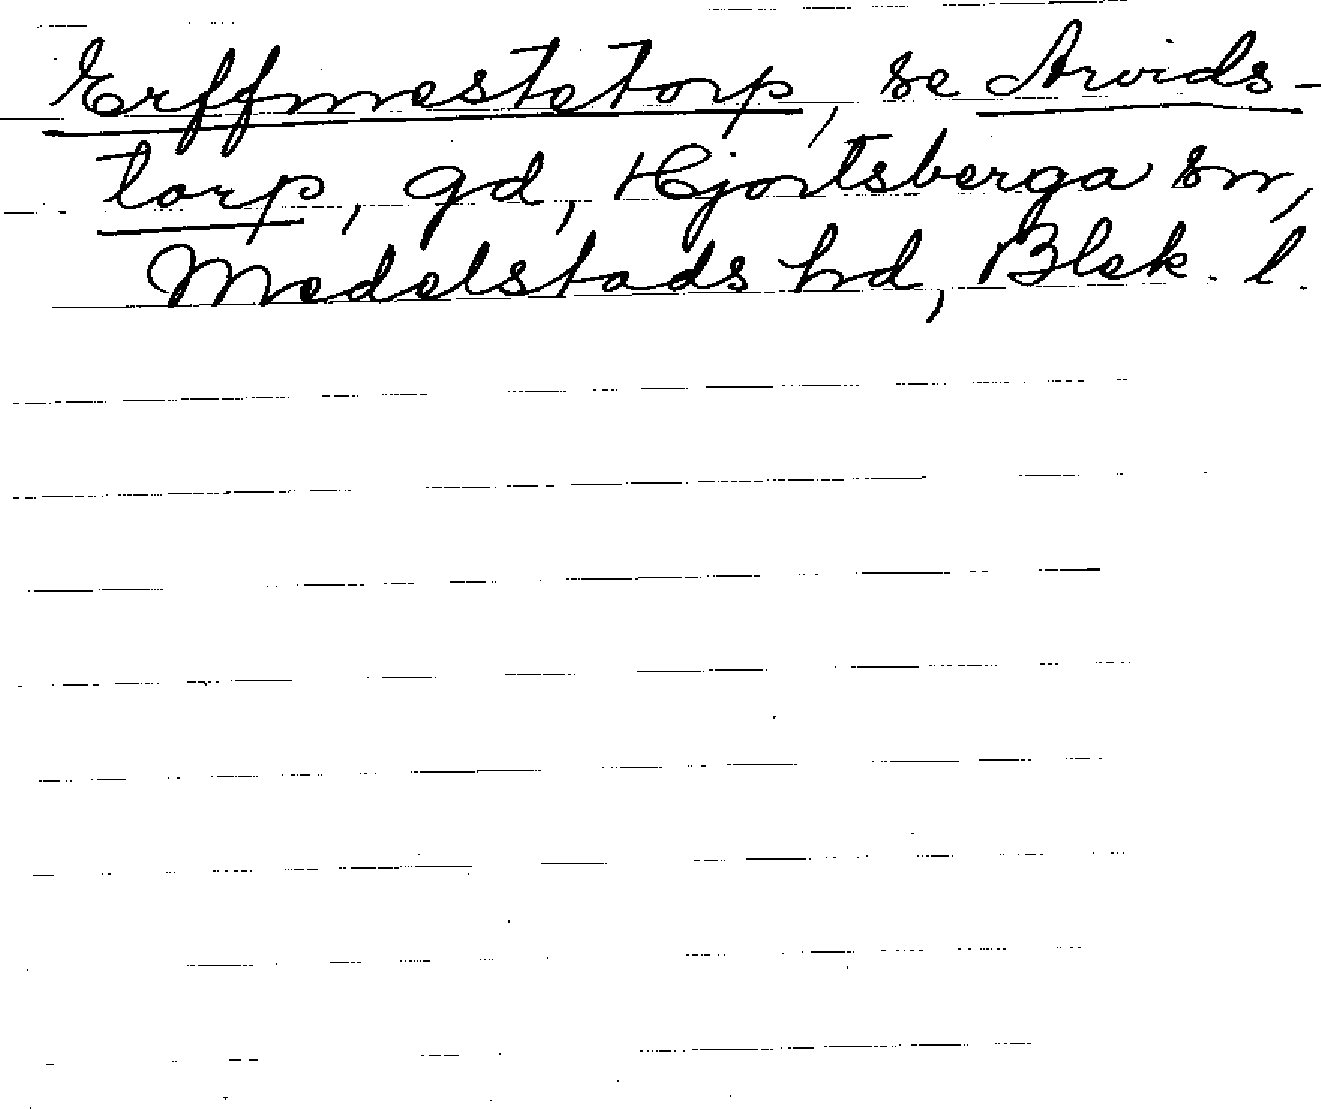 Erffmestetorp, se Arvids-
torp, gd, Hjortsberga sn,
Medelstads hd, Blek. l.